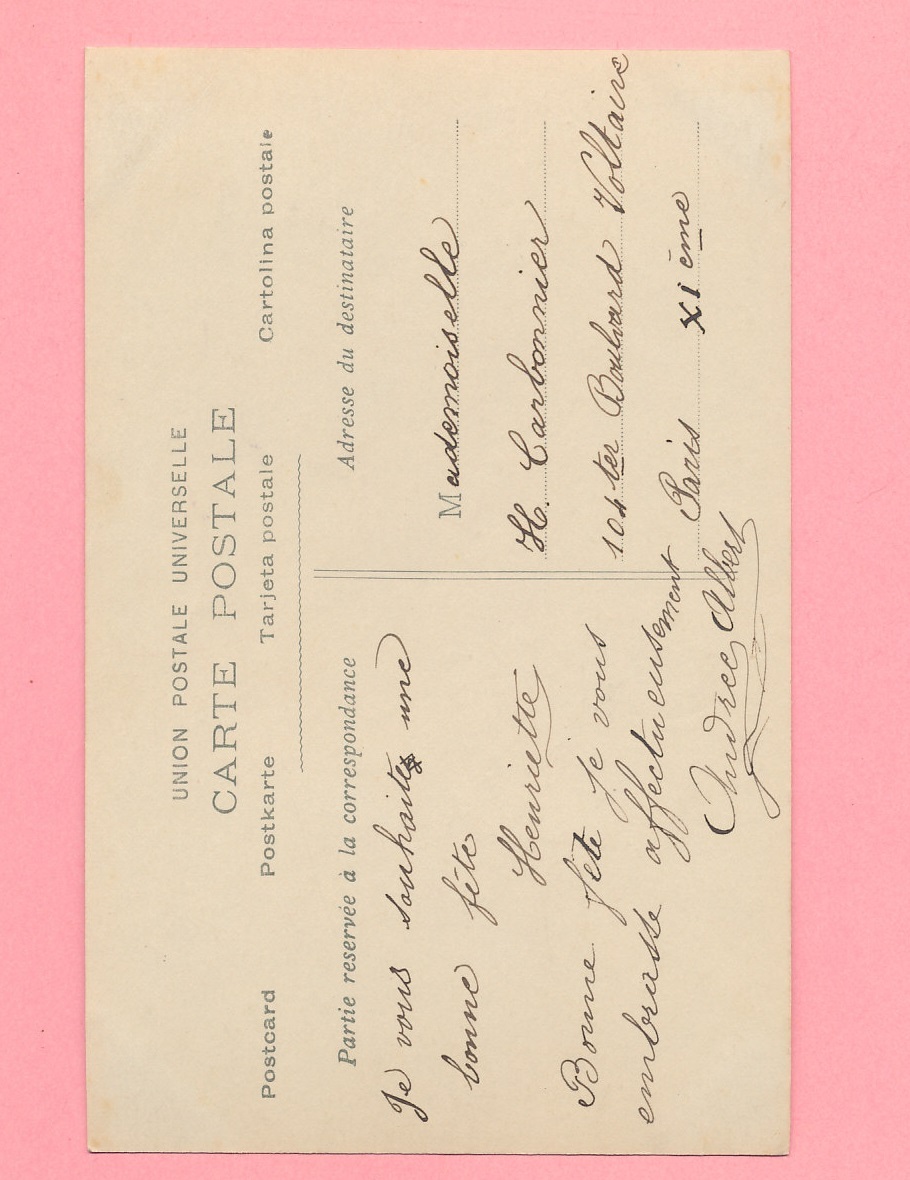 UNION POSTALE UNIVERSELLE
CARTE POSTALE
Postcard Postkarte Tarjeta postale Cartolina postale
Partie reservée à la correspondance
Je vous souhaite une
bonne fête
Henriette
Bonne fête Je vous
embrasse affectueusement
Andrée Albert
Adresse du destinataire
Mademoiselle
H. Carbonnier
104 ter Boulvard Voltaire
Paris XI ème